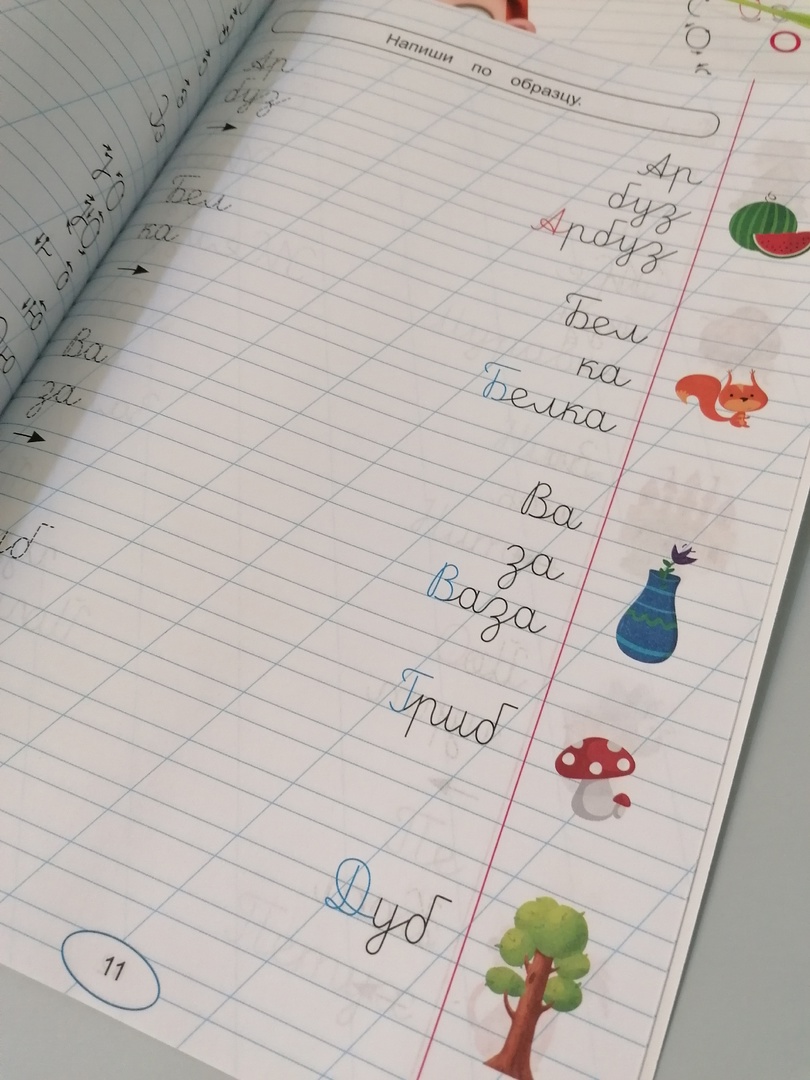 Напиши по образцу.
Ар
буз
Ар
буз
Арбуз
Бел
ка
Бел
ка
Белка
Ва
за
Ва
за
Ваза
Гриб
Дуб
11